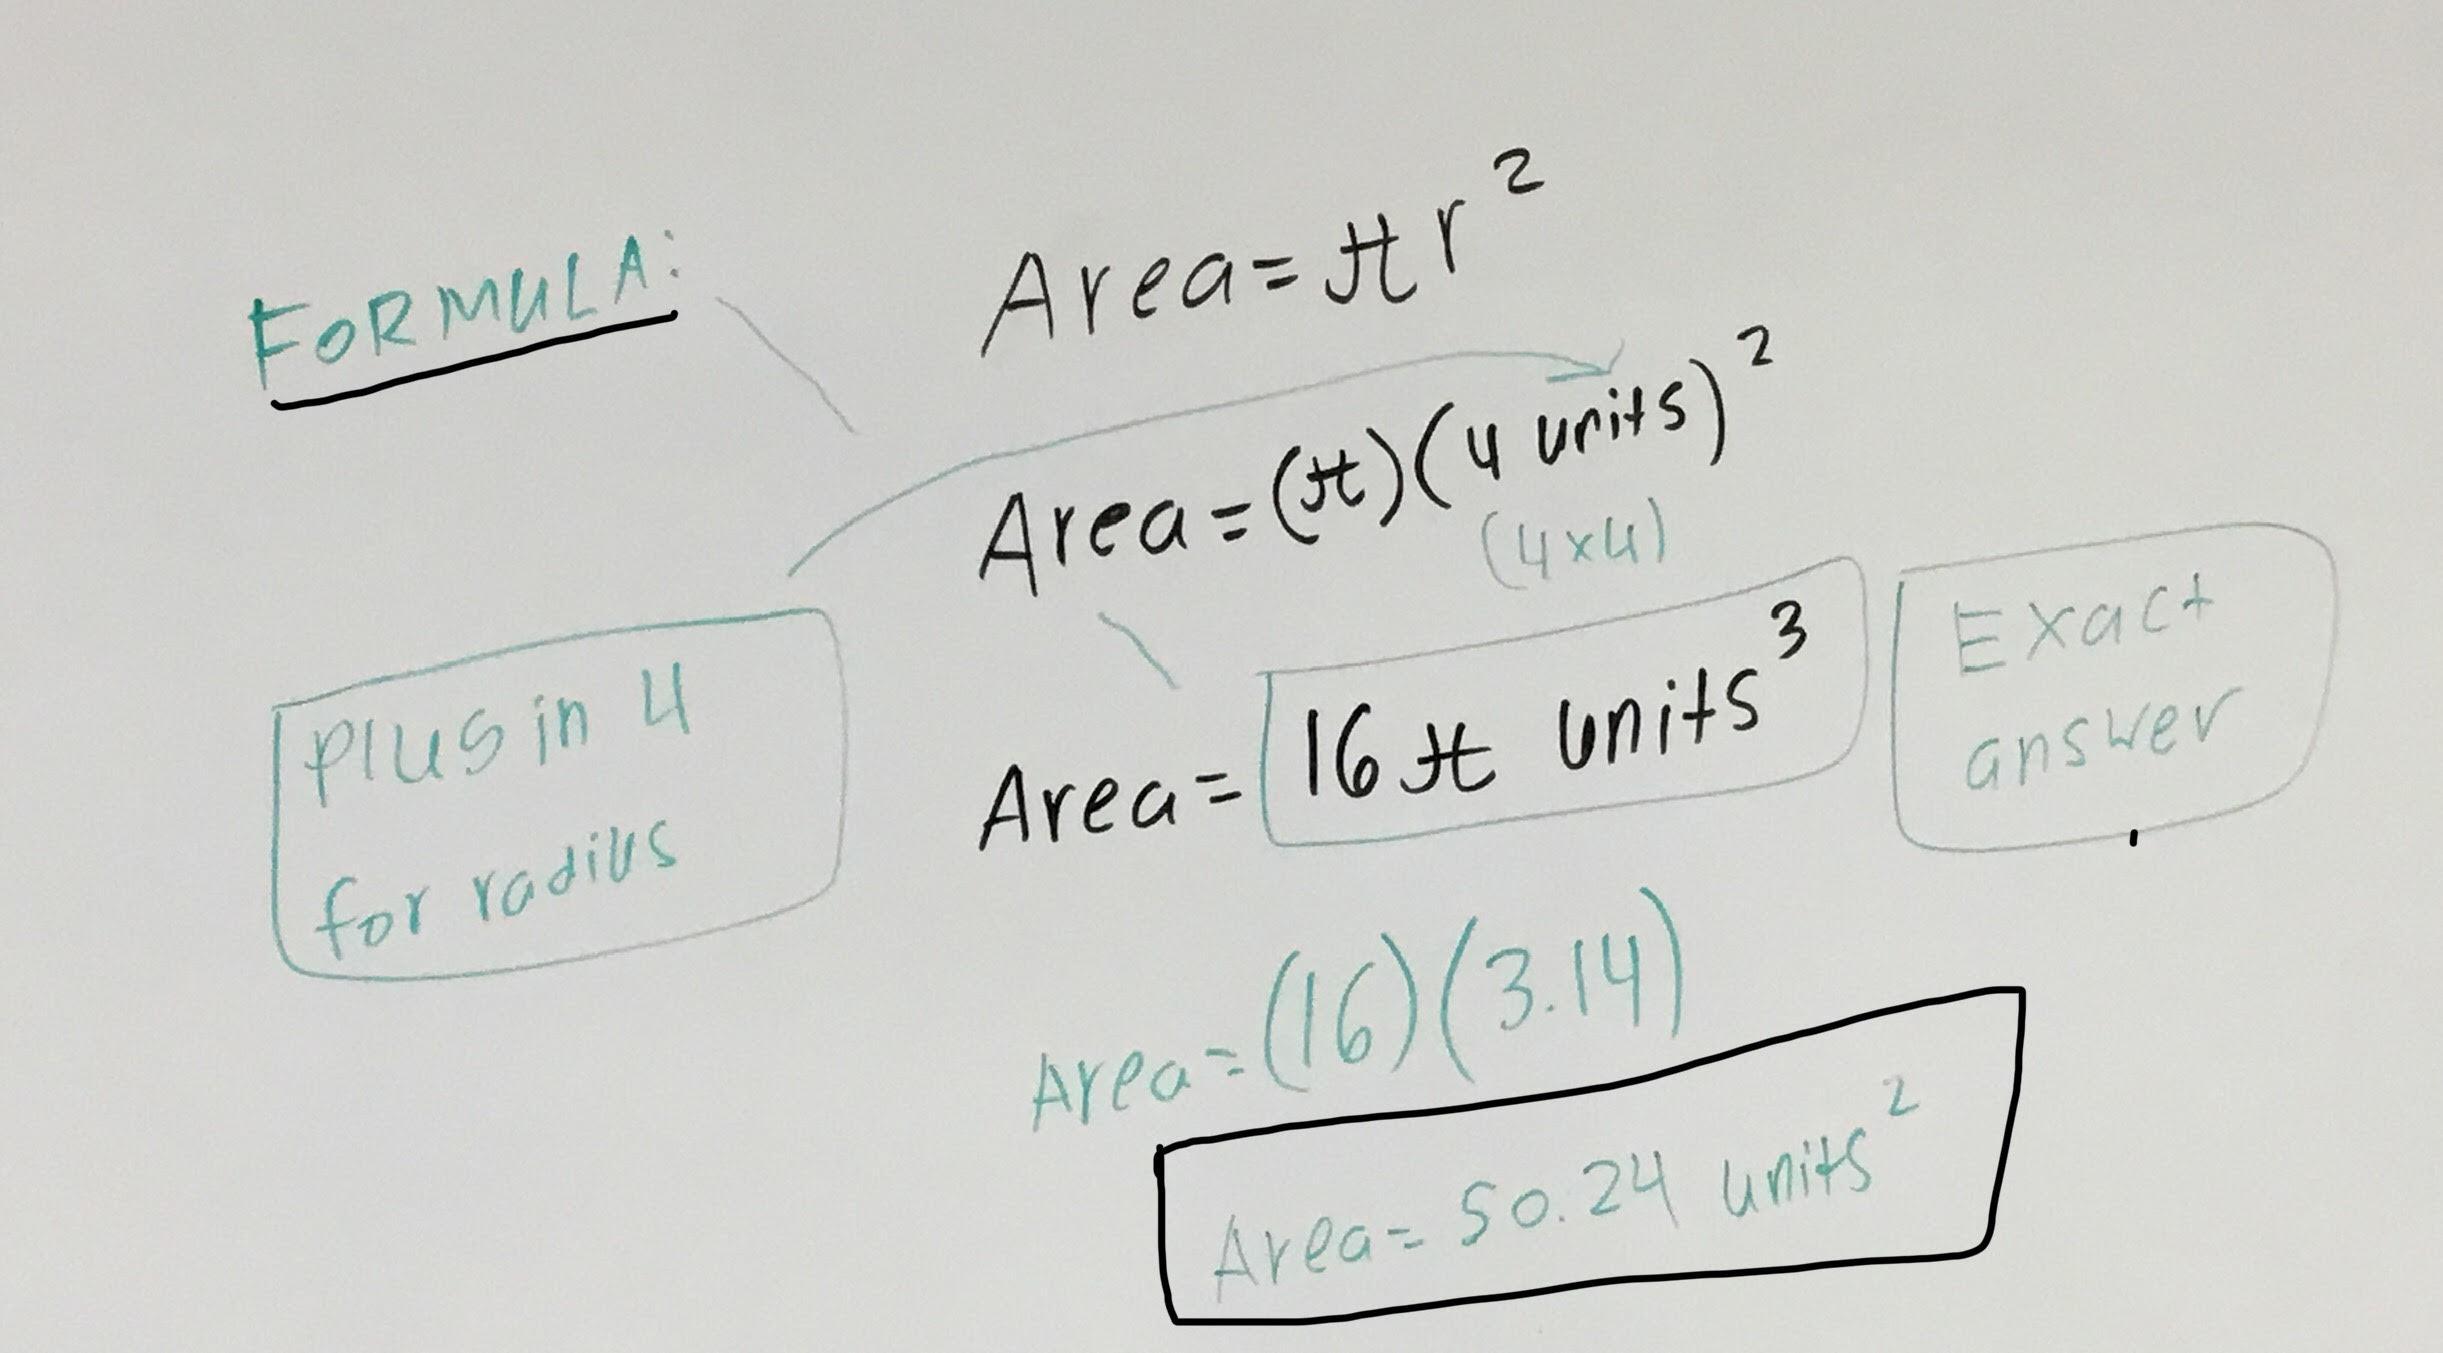 FORMULA:
Area=πr²
Area=(π)(4 units)²
(4x4)
Plug in 4
for radius
Area= 16π units³
Exact
answer
Area=(16)(3.14)
Area= 50.24 units²